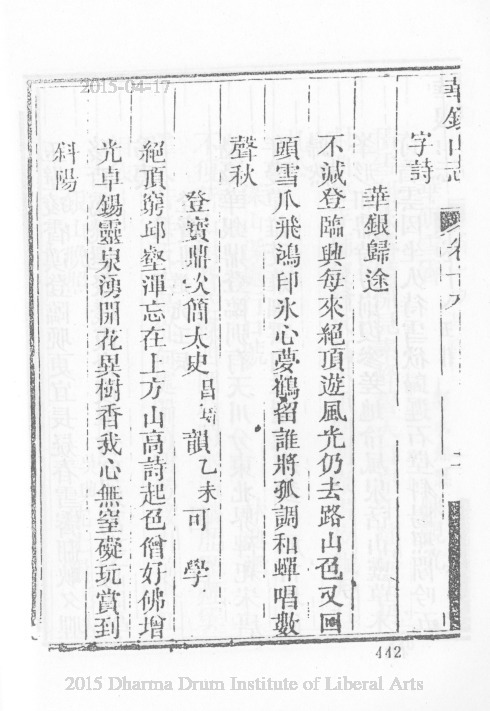 2015-04-17
華銀山志 卷十九
字詩
華銀歸途
不減登臨興每來絕頂遊風光仍去路山色又回
頭雪爪飛鴻印氷心夢鶴留誰將孤調和蟬唱數
聲秋
登寶鼎次簡太史昌 韻乙未 可 學
絕頂窮邱壑渾忘在上方山高詩起色僧好佛增
光卓錫靈泉湧開花異樹香我心無窒礙玩賞到
斜陽
442
2015 Dharma Drum Institute of Liberal Arts